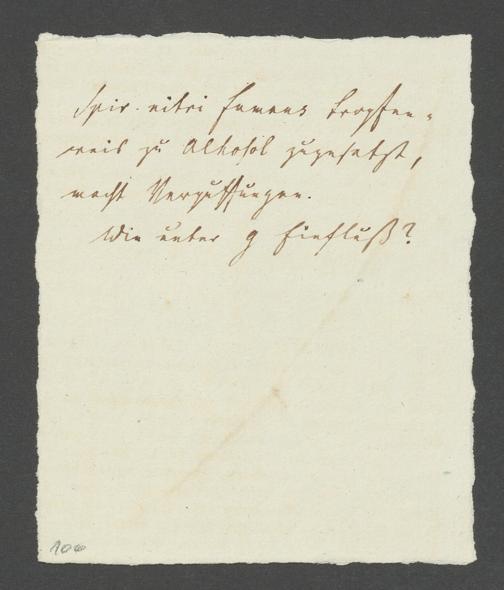 Spir. nitri fumans tropfen-
weis zu Alkohol zugesetzt,
macht Verpuffungen.
Wie unter g Einfluß?
100